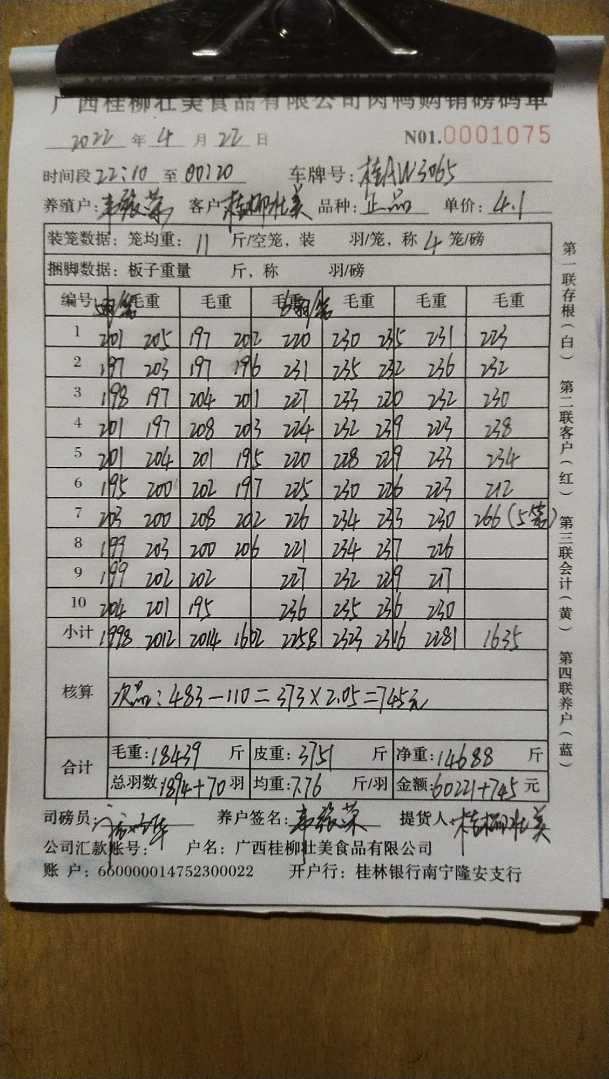 广西桂柳壮美食品有限公司肉鸭购销磅码单
2022 年 4 月 22 日 N01.0001075
时间段 22:10 至 00:20 车牌号: 桂AW3065
养殖户: 客户 桂柳壮美 品种: 正品 单价: 4.1
装笼数据: 笼均重: 11 斤/空笼, 装 羽/笼, 称 4 笼/磅
捆脚数据: 板子重量 斤, 称 羽/磅
编号 5羽/笼 毛重 毛重 6羽/笼 毛重 毛重 毛重 毛重
1 201 205 197 202 220 230 235 231 223
2 197 203 197 196 231 235 232 236 232
3 198 197 204 201 227 233 220 232 230
4 201 197 208 203 224 232 239 223 238
5 201 204 201 195 220 228 229 233 234
6 195 200 202 197 225 230 226 223 212
7 203 200 208 202 226 234 233 230 266 (5笼)
8 199 203 200 206 221 234 237 226
9 199 202 202 227 232 229 217
10 204 201 195 236 235 236 230
小计 1998 2012 2014 1602 2258 2323 2316 2281 1635
核算 次品: 483-110=373×2.05=745元
合计 毛重: 18439 斤 皮重: 3751 斤 净重: 14688 斤
总羽数: 1894+70 羽 均重: 7.76 斤/羽 金额: 60221+745 元
司磅员: 养户签名: 提货人: 桂柳壮美
公司汇款账号: 户名: 广西桂柳壮美食品有限公司
账 户: 660000014752300022 开户行: 桂林银行南宁隆安支行
第一联存根(白) 第二联客户(红) 第三联会计(黄) 第四联养户(蓝)